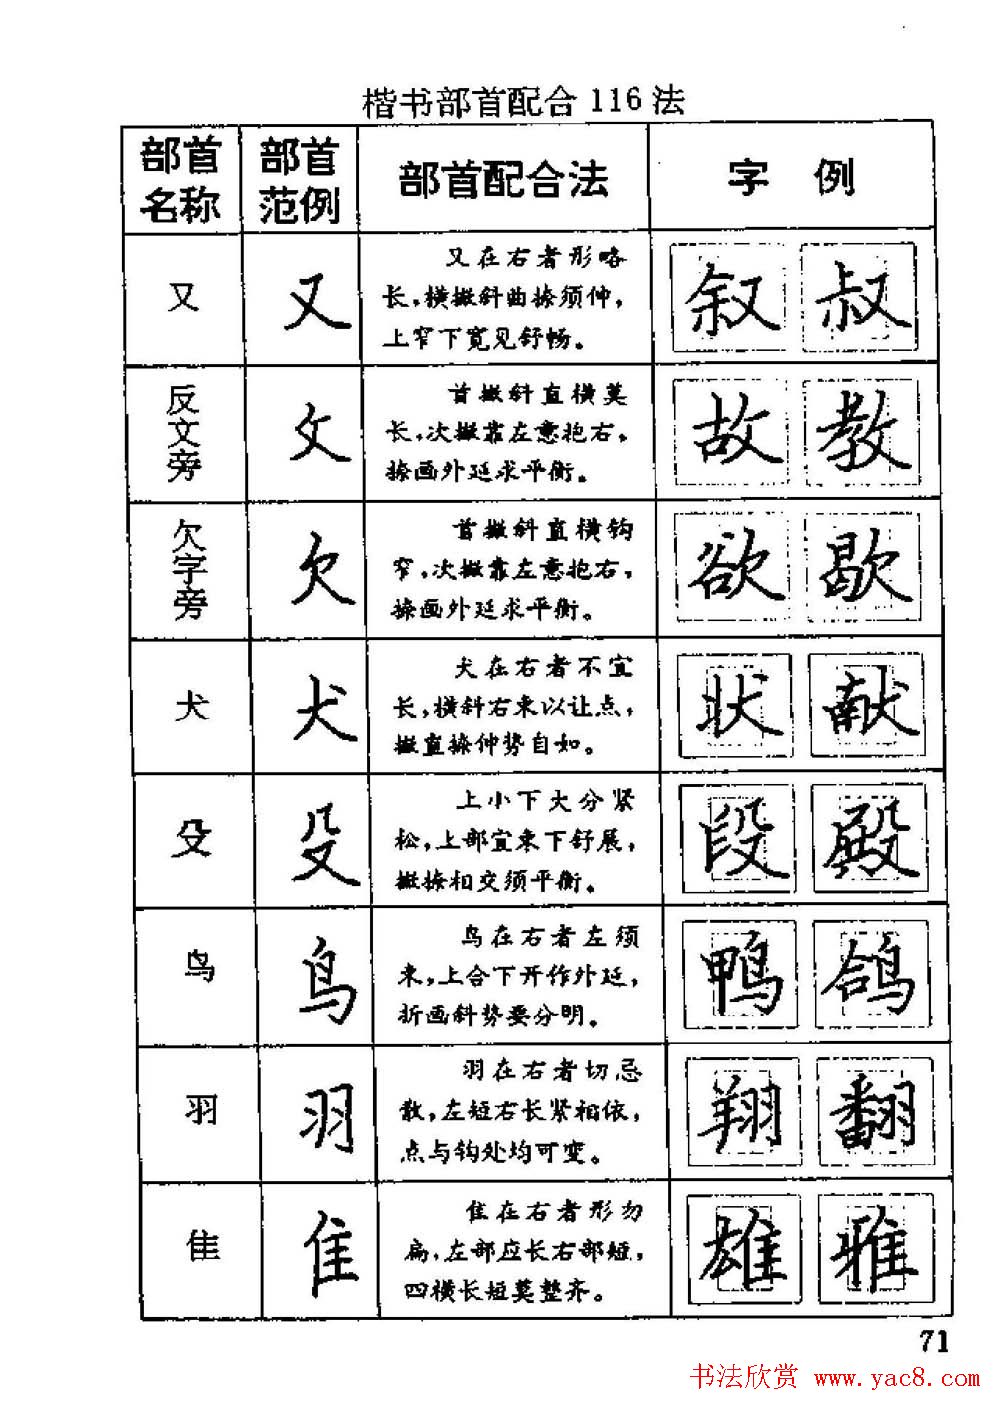 楷书部首配合116法
部首名称 部首范例 部首配合法 字 例
又 又 又在右者形略
长,横撇斜曲捺须伸,
上窄下宽见舒畅。
叙 叔
反文旁 攵 首撇斜直横莫
长,次撇靠左意抱右,
捺画外延求平衡。
故 教
欠字旁 欠 首撇斜直横钩
窄,次撇靠左意抱右,
捺画外延求平衡。
欲 歇
犬 犬 犬在右者不宜
长,横斜右束以让点,
撇直捺伸势自如。
状 献
殳 殳 上小下大分紧
松,上部宜束下舒展,
撇捺相交须平衡。
段 殿
鸟 鸟 鸟在右者左须
束,上合下开作外延,
折画斜势要分明。
鸭 鸽
羽 羽 羽在右者切忌
散,左短右长紧相依,
点与钩处均可变。
翔 翻
隹 隹 隹在右者形勿
扁,左部应长右部短,
四横长短莫整齐。
雄 雅
71
书法欣赏 www.yac8.com